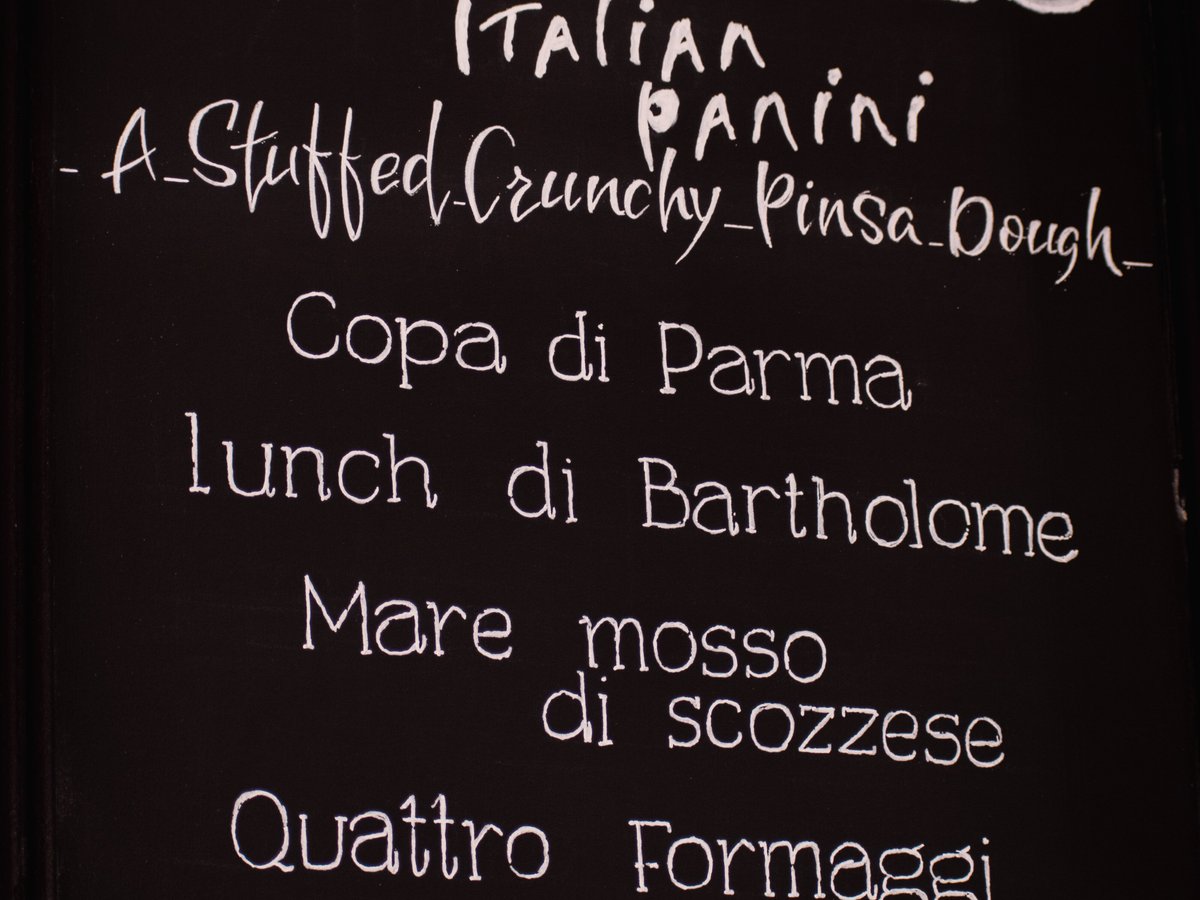 Italian
Panini
- A_Stuffed_Crunchy_Pinsa_Dough_
Copa di Parma
lunch di Bartholome
Mare mosso
di scozzese
Quattro Formaggi